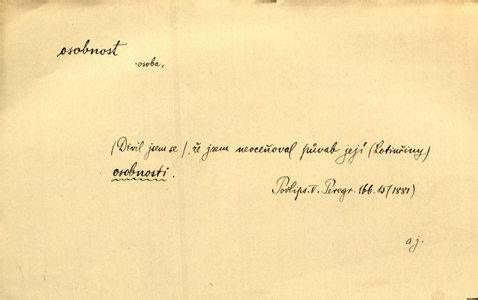 osobnost
osoba,
(Divil jsem se), že jsem neoceňoval půvab její (Lotinčiny)
osobnosti.
Podlips. V. Peregr. 166. 15 (1881)
aj.